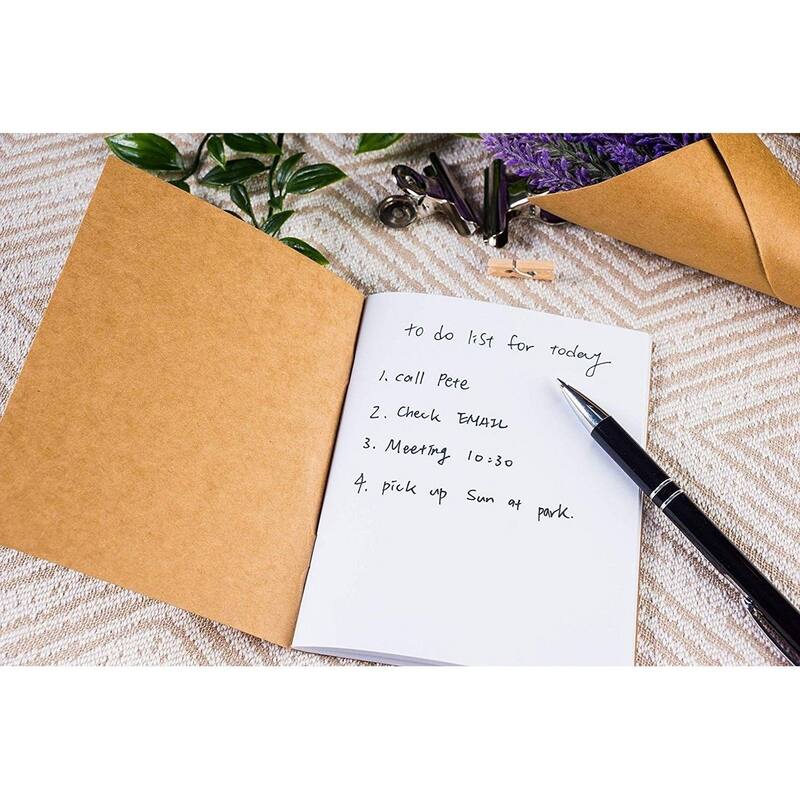 to do list for today
1. call Pete
2. Check EMAIL
3. Meeting 10:30
4. pick up Sun at park.